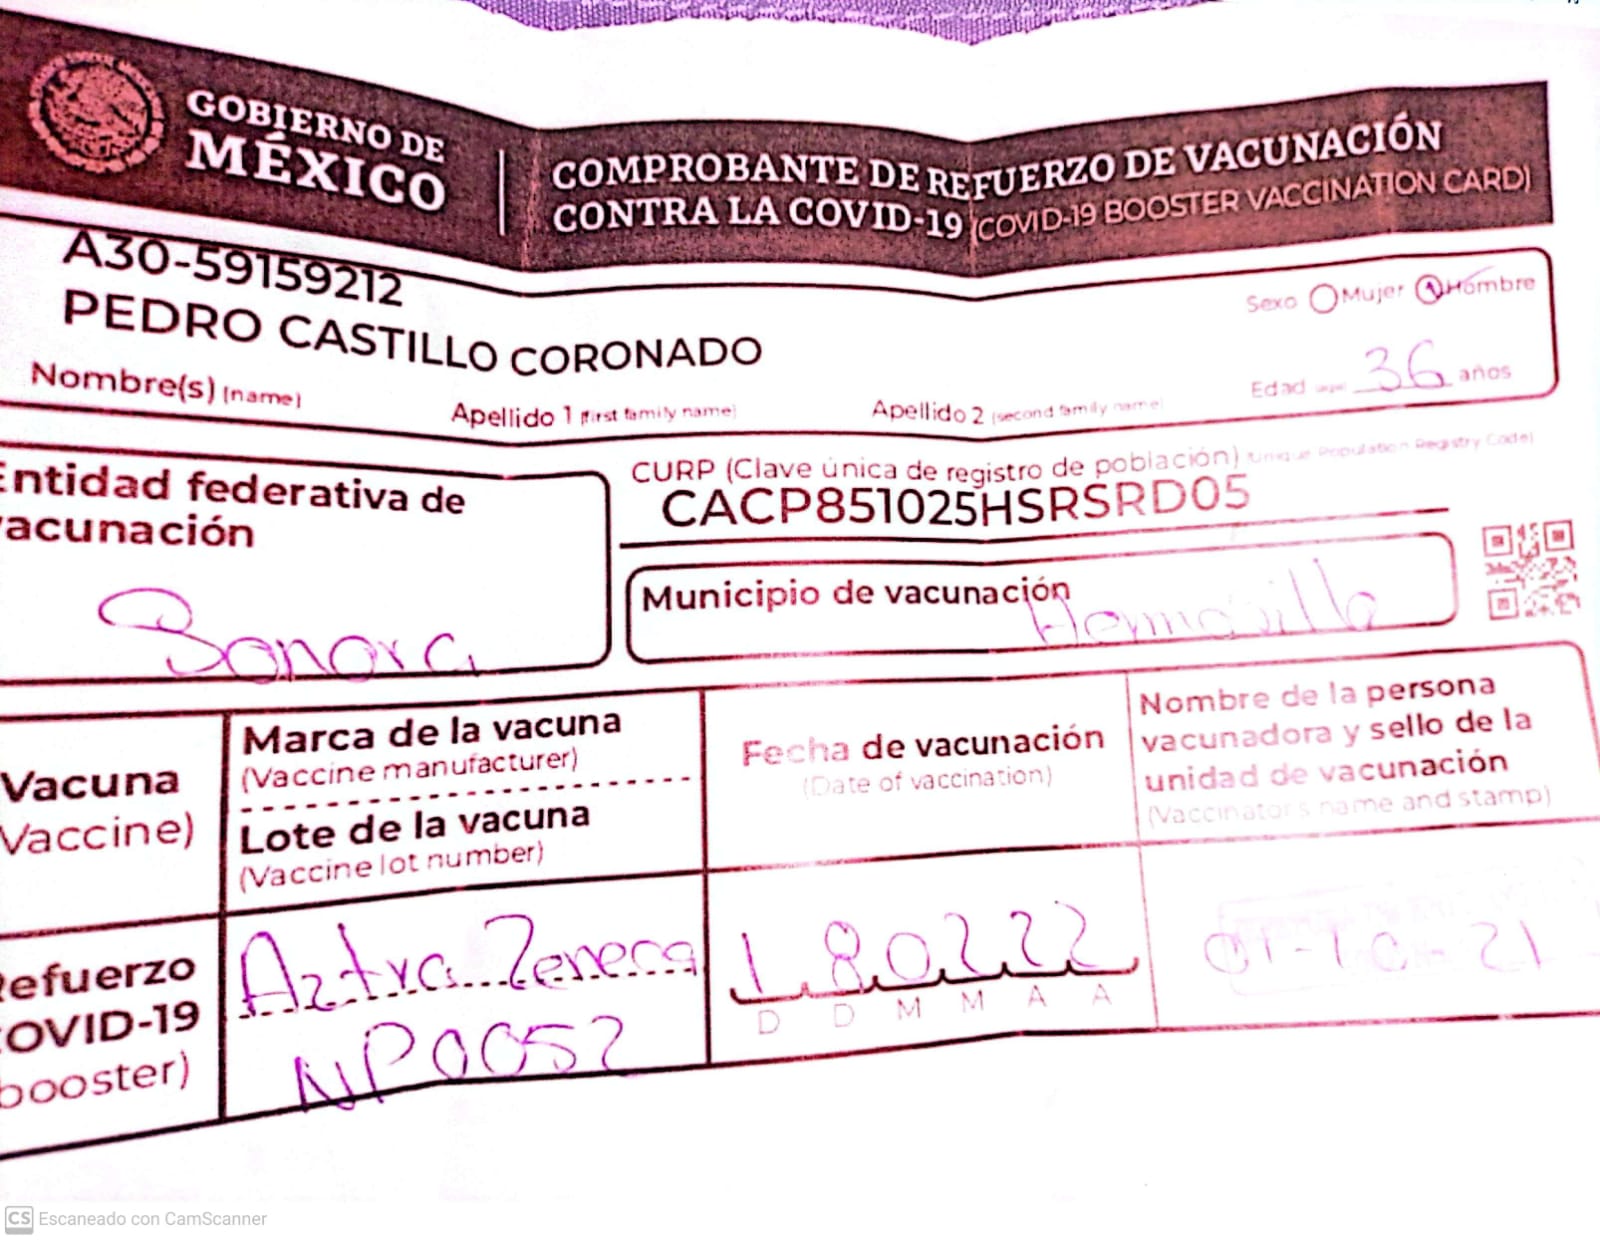 GOBIERNO DE
MÉXICO
COMPROBANTE DE REFUERZO DE VACUNACIÓN
CONTRA LA COVID-19 (COVID-19 BOOSTER VACCINATION CARD)
A30-59159212
PEDRO CASTILLO CORONADO
Nombre(s) (name)
Apellido 1 (first family name)
Apellido 2 (second family name)
Sexo Mujer Hombre
Edad 36 años
Entidad federativa de
vacunación
Sonora
CURP (Clave única de registro de población) (Unique Population Registry Code)
CACP851025HSRSRD05
Municipio de vacunación
Hermosillo
Vacuna
(Vaccine)
Marca de la vacuna
(Vaccine manufacturer)
Lote de la vacuna
(Vaccine lot number)
Fecha de vacunación
(Date of vaccination)
Nombre de la persona
vacunadora y sello de la
unidad de vacunación
(Vaccinator's name and stamp)
Refuerzo
COVID-19
(booster)
Aztra Zeneca
NP0052
180222
D D M M A A
CS Escaneado con CamScanner